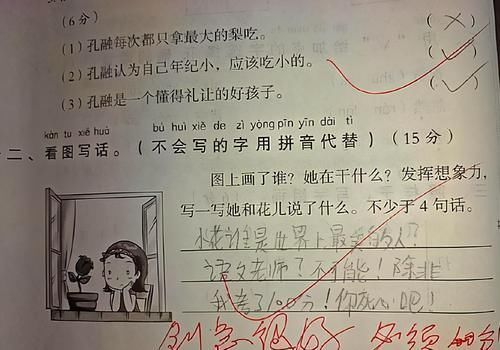 (6分)
(1) 孔融每次都只拿最大的梨吃。 (×)
(2) 孔融认为自己年纪小，应该吃小的。 (✓)
(3) 孔融是一个懂得礼让的好孩子。 (✓)
kàn tú xiě huà bú huì xiě de zì yòng pīn yīn dài tì
二、看图写话。(不会写的字用拼音代替)(15分)
图上画了谁？她在干什么？发挥想象力，
写一写她和花儿说了什么。不少于4句话。
小花谁是世界上最美的人？
语文老师？不可能！除非
我考了100分！你死心吧！！